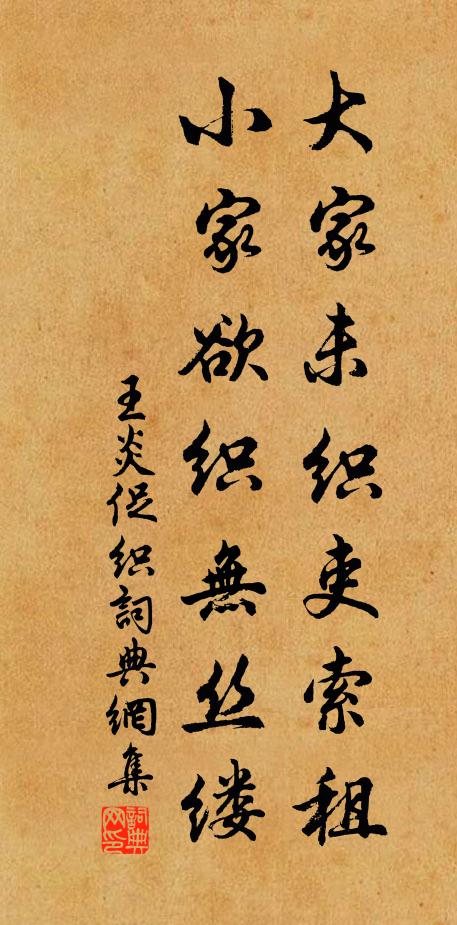 大家未织吏索租
小家欲织無丝缕
王炎促织詞典網集
詞典网印